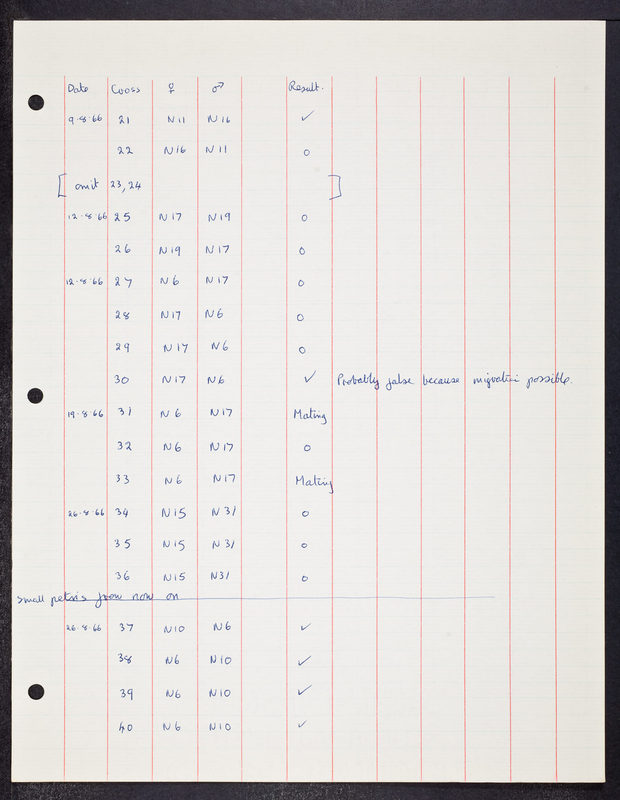 Date Cross ♀ ♂ Result.
9.8.66 21 N11 N16 ✓
22 N16 N11 0
[ omit 23, 24 ]
12.8.66 25 N17 N19 0
26 N19 N17 0
12.8.66 27 N6 N17 0
28 N17 N6 0
29 N17 N6 0
30 N17 N6 ✓ Probably false because migration possible.
19.8.66 31 N6 N17 Mating
32 N6 N17 0
33 N6 N17 Mating
26.8.66 34 N15 N31 0
35 N15 N31 0
36 N15 N31 0
small petris from now on
26.8.66 37 N10 N6 ✓
38 N6 N10 ✓
39 N6 N10 ✓
40 N6 N10 ✓